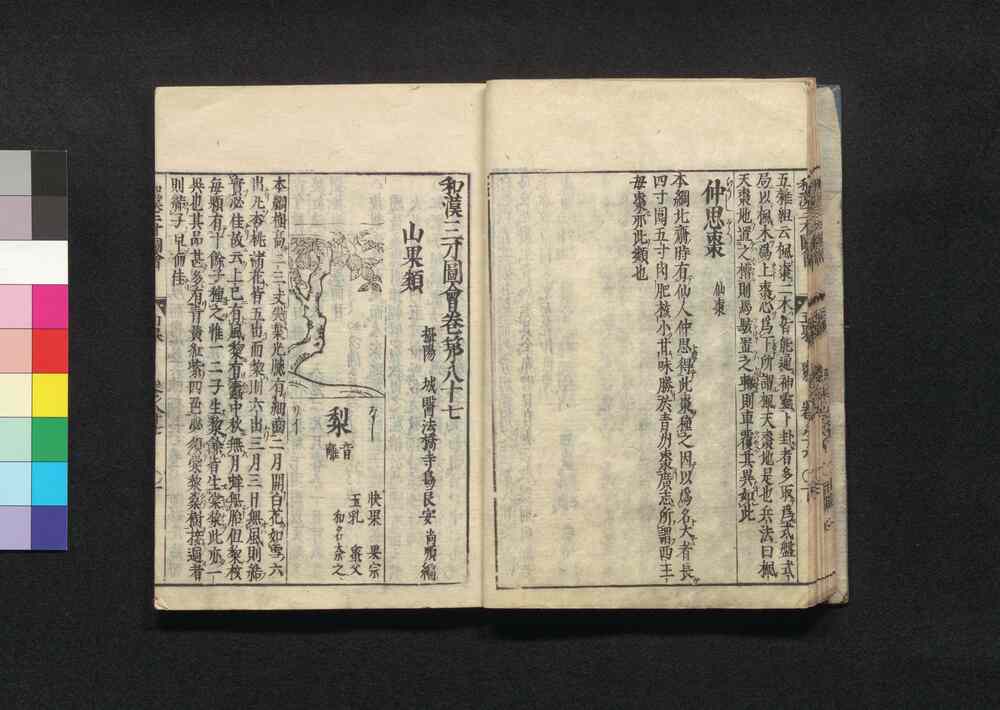 五雜組云楓棗二木皆能通神靈卜卦者多取爲式盤式
局以楓木爲上棗心爲下所謂楓天棗地是也兵法曰楓
天棗地置之槽則馬駭置之車則車覆其異如此
仲思棗 仙棗
本綱北齊時有仙人仲思得此棗種之因以爲名大者長
四寸圍五寸肉肥核小甘味勝於青州棗廣志所謂西王
母棗亦此類也
和漢三才圖會卷第八十七
攝陽 城醫法橋寺島良安尚順編
山果類
梨
音離
快果 果宗
玉乳 蜜父
和名奈之
本綱梨樹高二三丈尖葉光膩有細齒二月開白花如雪六
出凡杏桃諸花皆五出而梨則六出三月三日無風則結
實必佳故云上巳有風梨有蠧中秋無月蚌無胎但梨核
每顆有十餘子種之惟一二子生梨餘皆生棠梨此亦一
異也其品甚多有青黃紅紫四色必須棠梨桑樹接過者
則結子早而佳